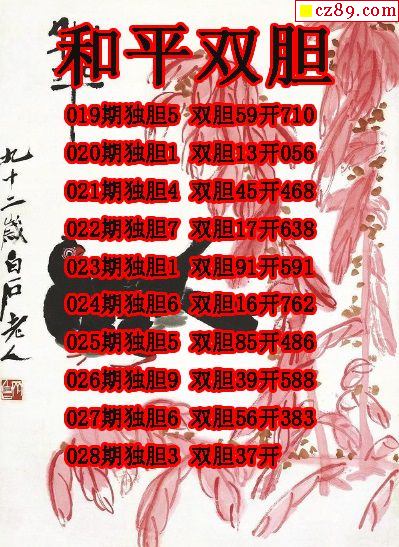 cz89.com
和平双胆
019期独胆5 双胆59开710
020期独胆1 双胆13开056
021期独胆4 双胆45开468
022期独胆7 双胆17开638
023期独胆1 双胆91开591
024期独胆6 双胆16开762
025期独胆5 双胆85开486
026期独胆9 双胆39开588
027期独胆6 双胆56开383
028期独胆3 双胆37开
九十二歲白石老人